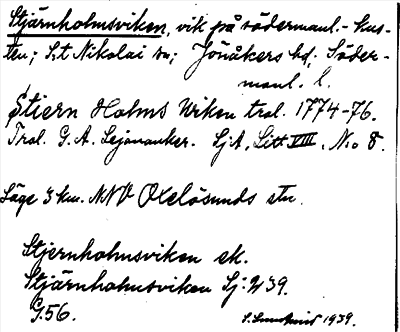 Stjärnholmsviken, vik på södermanl.- kus-
ten; S:t Nikolai sn; Jönåkers hd, Söder-
manl. l.
Stiern Holms Wiken tral. 1774-76.
Tral. G. A. Sejonanker. SjA, Litt VIII, N:o 8.
Läge 3 km. NNV Oxelösunds stn.
Stjernholmsviken ek.
Stjärnholmsviken Sj: 239.
G:56.
1939.